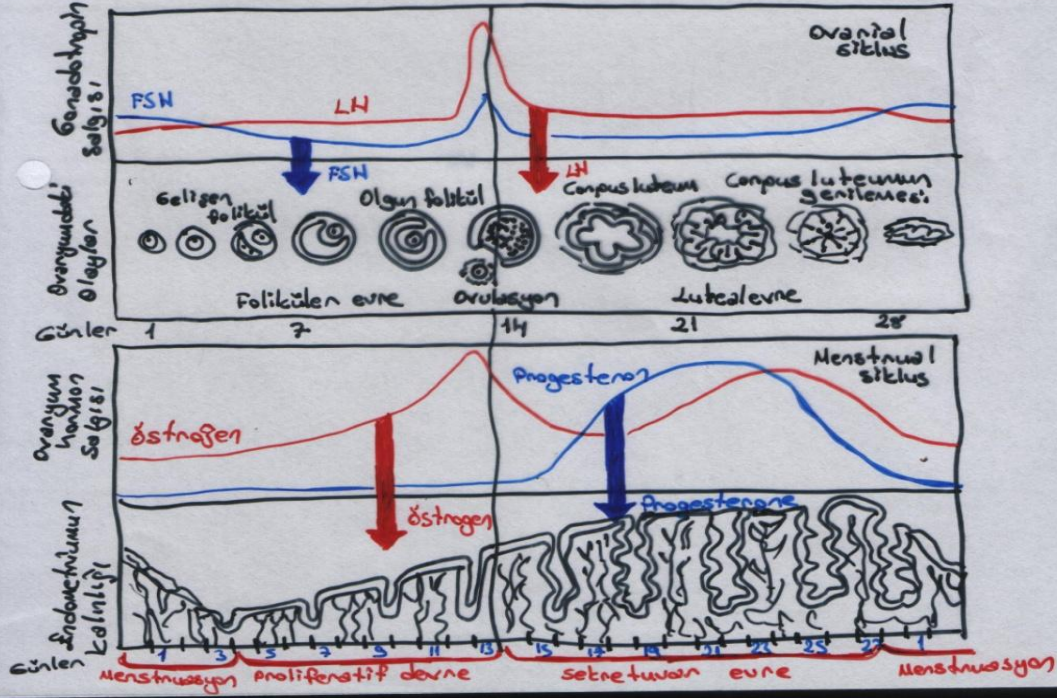 Gonadotropin
salgısı
FSH
LH
Ovarial
siklus
FSH
LH
Ovaryumdaki
Olaylar
Gelişen
folikül
Olgun folikül
Corpus luteum
Corpus luteumun
gerilemesi
Foliküler evre
Ovulasyon
Luteal evre
Günler
1
7
14
21
28
Ovaryum
hormon
salgısı
Östrojen
Progesteron
Menstrual
siklus
Östrogen
Progesterone
Endometriumun
kalınlığı
Günler
1 3 5 7 9 11 13 15 17 19 21 23 25 27 1
Menstruasyon
Proliferatif devre
Sekretuvar evre
Menstruasyon